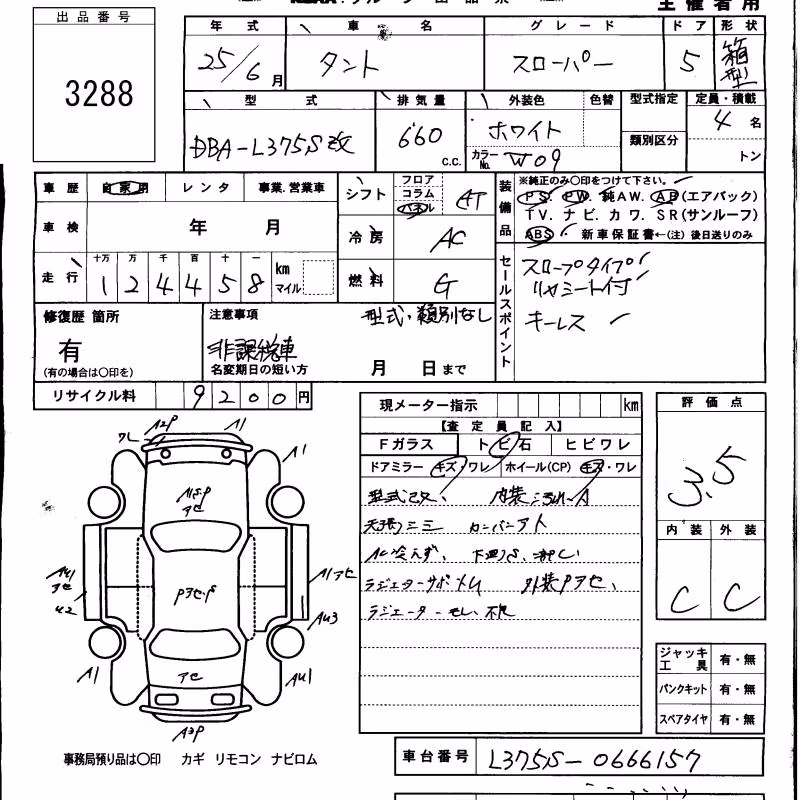 主催者用
出品番号
3288
年式 車名 グレード ドア 形状
25/6月 タント スローパー 5 箱型
型式 排気量 外装色 色替 型式指定 定員・積載
DBA-L375S改 660 c.c. ホワイト 4名
カラーNo. W09 類別区分 トン
車歴 自家用 レンタ 事業.営業車
車検 年 月
走行 十万 万 千 百 十 一
124458 km マイル
シフト フロア コラム パネル AT
冷房 AC
燃料 G
装備品
※純正のみ〇印をつけて下さい。
PS. PW. 純AW. AB(エアバック)
TV. ナビ. カワ. SR(サンルーフ)
ABS ・ 新車保証書←(注)後日送りのみ
セールスポイント
スロープタイプ
リヤシート付
キーレス
修復歴 箇所
有
(有の場合は〇印を)
注意事項 型式・類別なし
非課税車
名変期日の短い方 月 日まで
リサイクル料 9200円
現メーター指示 km
【査定員記入】
Fガラス トビ石 ヒビワレ
ドアミラー キズ・ワレ ホイール(CP) キズ・ワレ
型式改、
ACきえず、
ラジエターサポートM 外装Pアセ、
評価点
3.5
内装 外装
C C
ジャッキ工具 有・無
パンクキット 有・無
スペアタイヤ 有・無
A2P A1
A1
アセ
A1アセ
アセ
Pアセ・P
AU3
A1 アセ AU1
A3P
事務局預り品は〇印 カギ リモコン ナビロム
車台番号 L375S-0666157